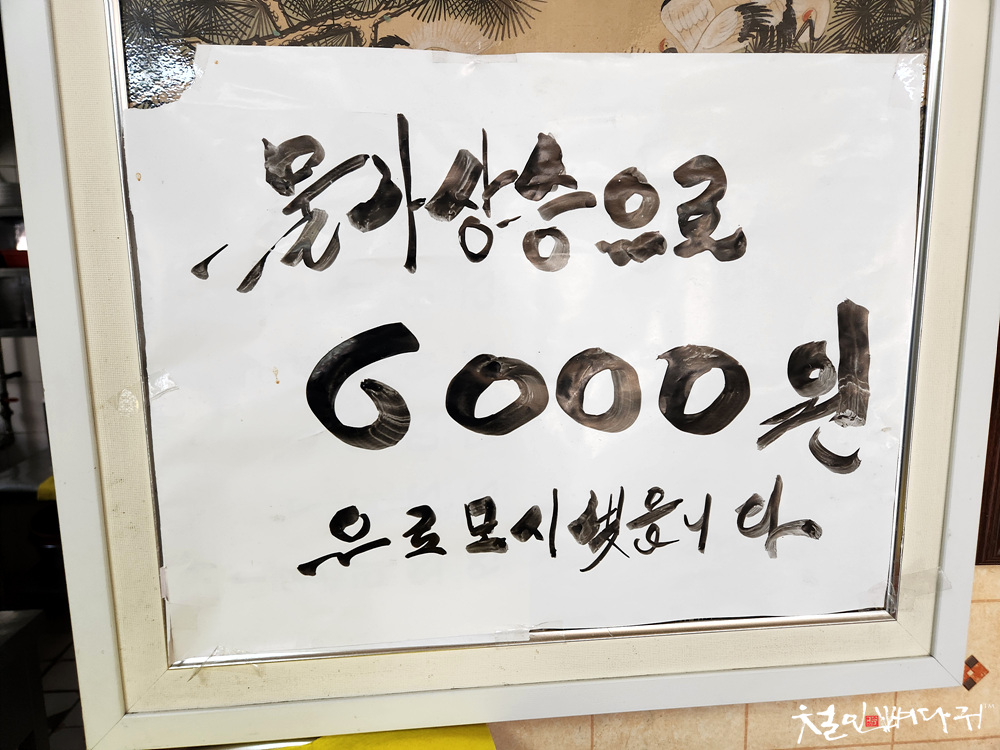 물가상승으로
6000원
으로모시겠읍니다
철인뼈다귀